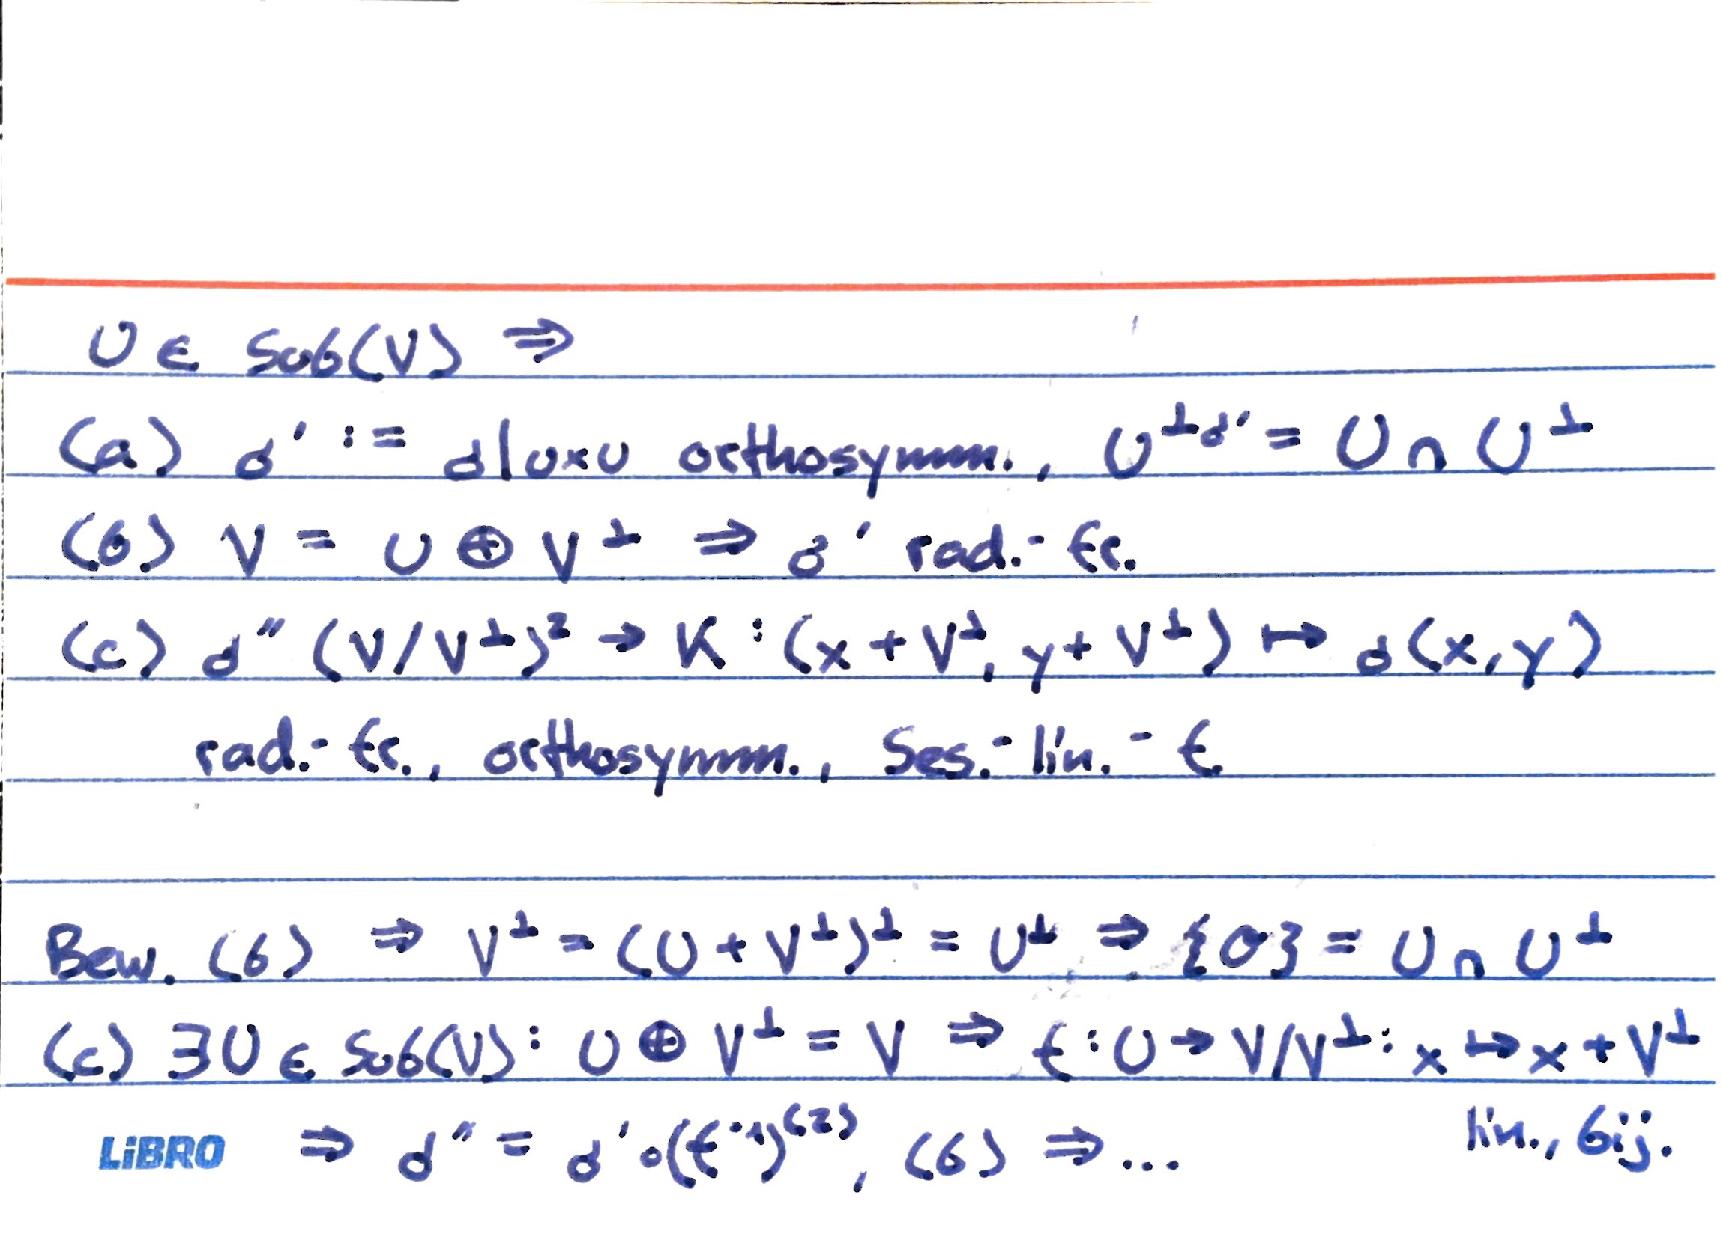 U ∈ Sub(V) ⇒
(a) σ' := σ|U×U orthosymm., U^⊥σ' = U ∩ U^⊥
(b) V = U ⊕ V^⊥ ⇒ σ' rad.-fr.
(c) σ'' (V/V^⊥)² → K : (x + V^⊥, y + V^⊥) ↦ σ(x, y)
rad.-fr., orthosymm., Ses.-lin.-f.
Bew. (b) ⇒ V^⊥ = (U + V^⊥)^⊥ = U^⊥ ⇒ {0} = U ∩ U^⊥
(c) ∃U ∈ Sub(V): U ⊕ V^⊥ = V ⇒ f : U → V/V^⊥ : x ↦ x + V^⊥
lin., bij.
LiBRO ⇒ σ'' = σ'∘(f^-1)^(2), (b) ⇒ ...